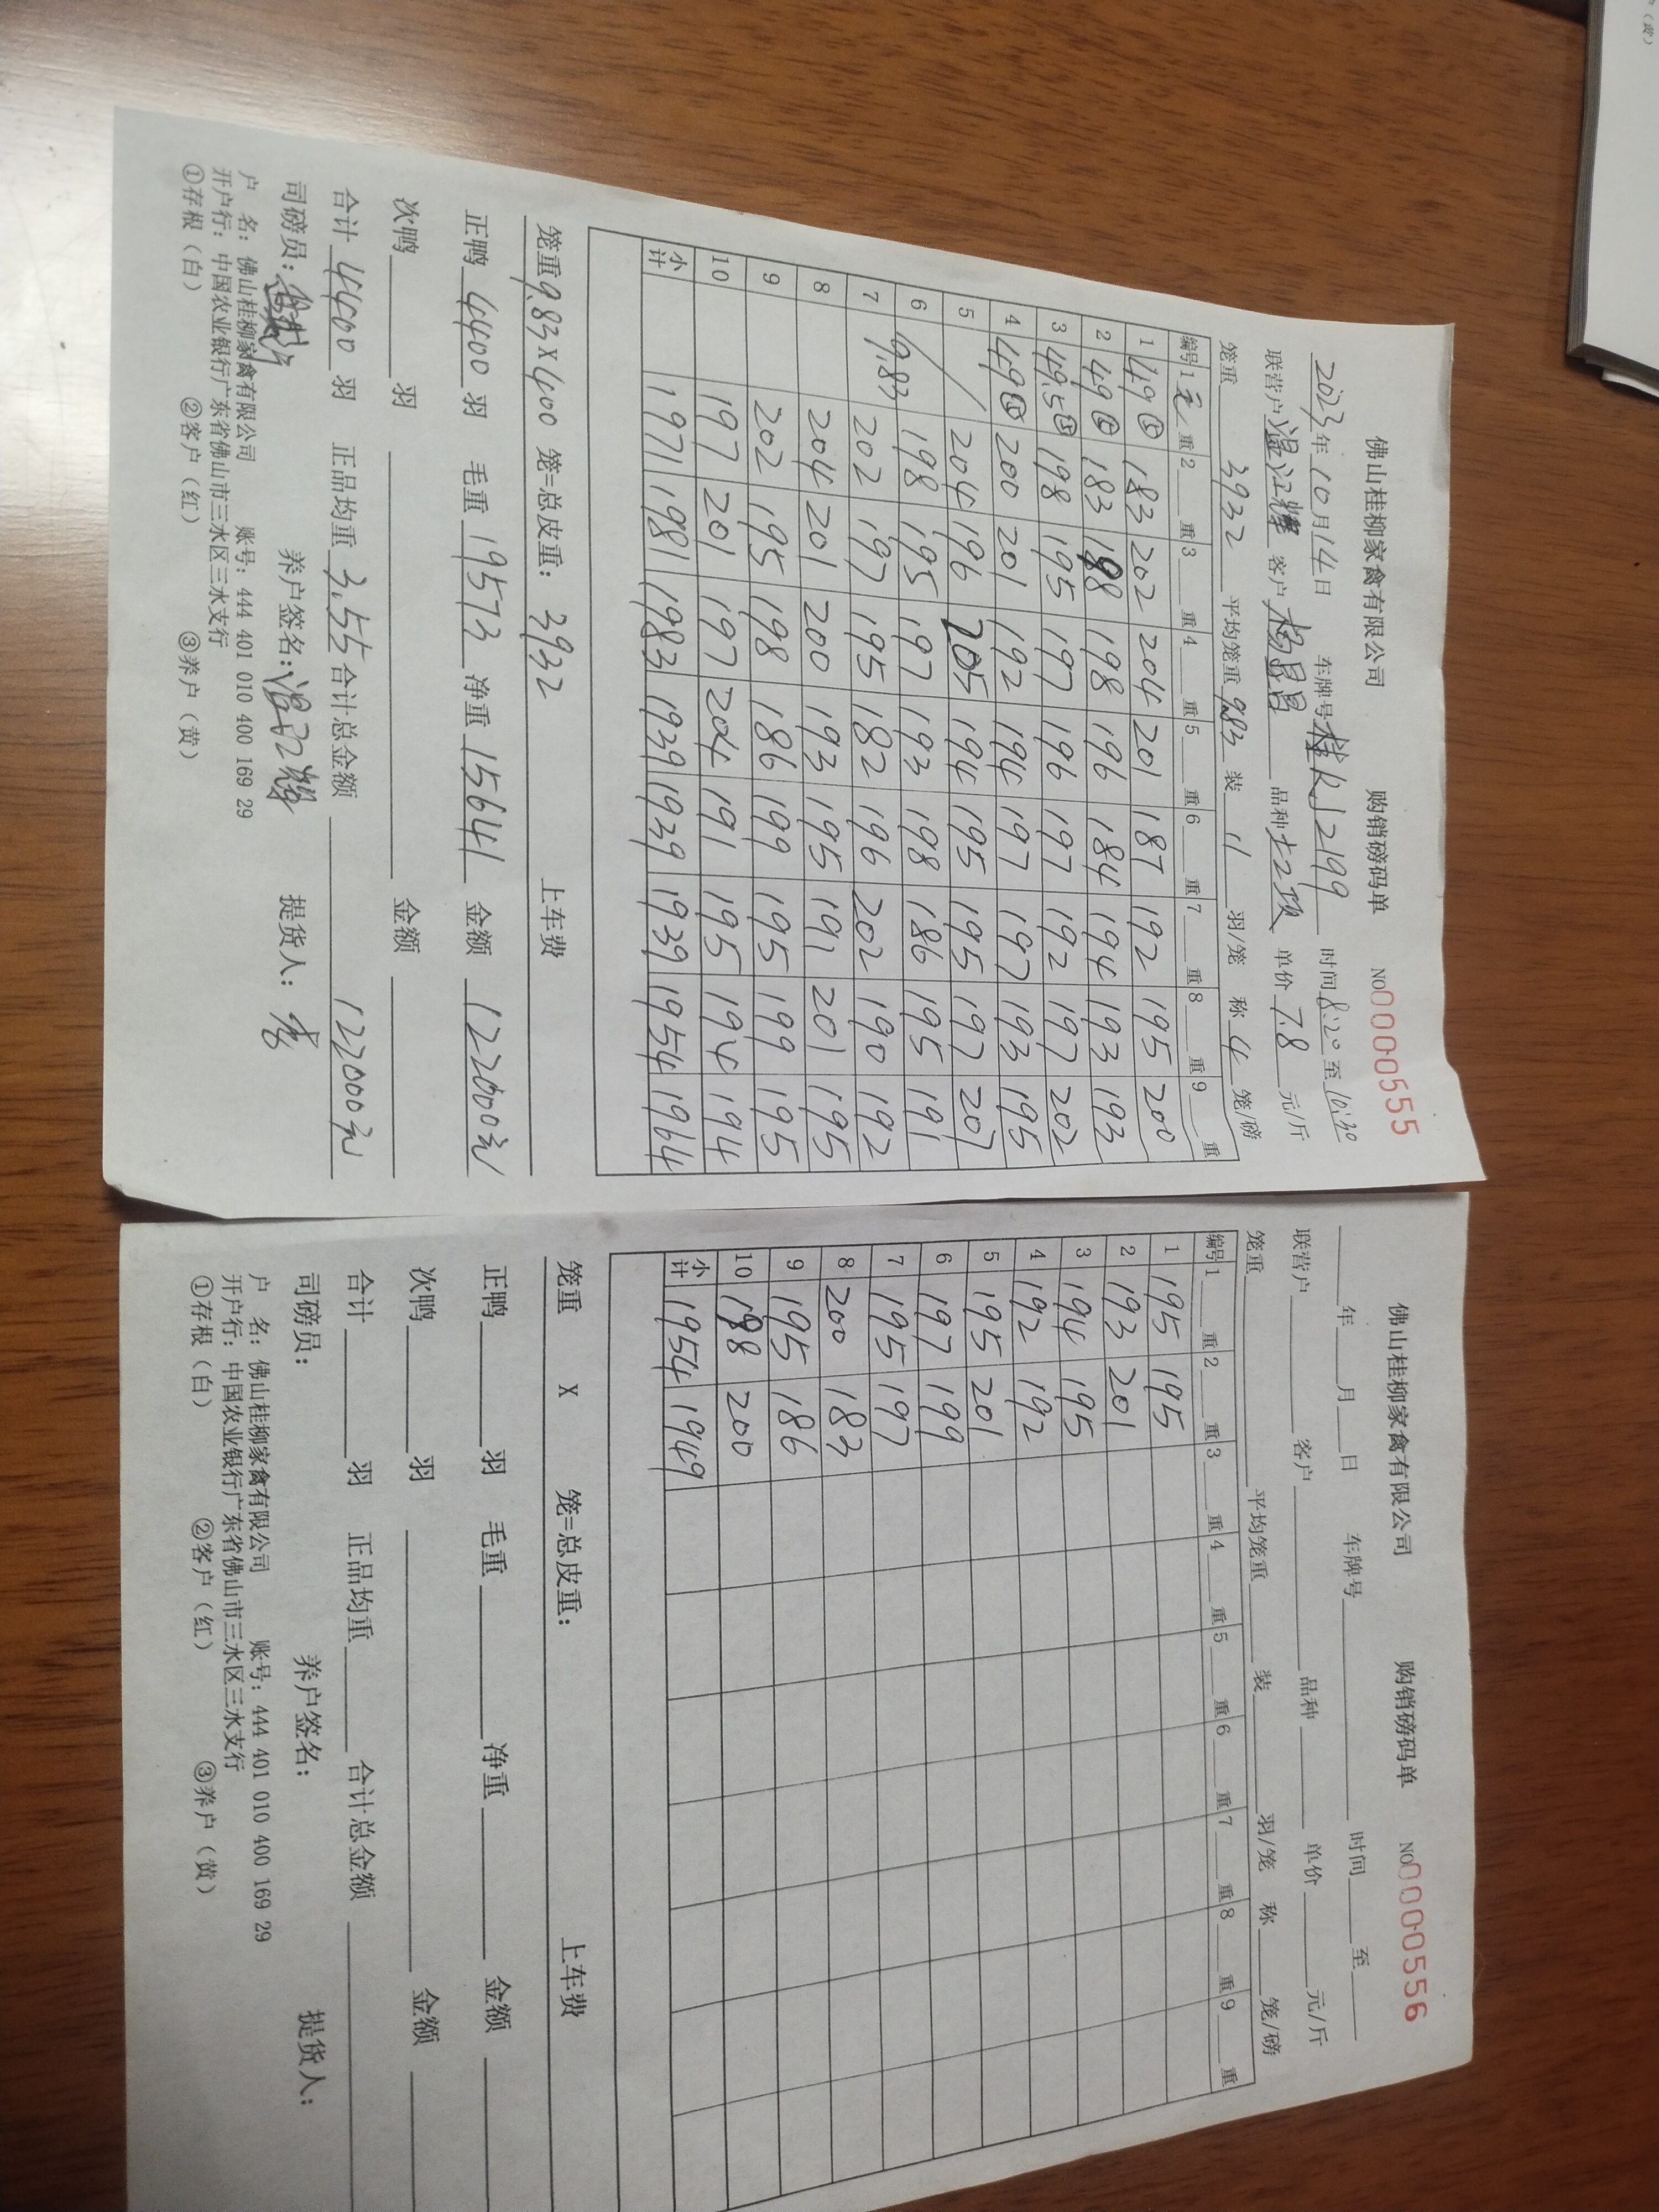 佛山桂柳家禽有限公司 购销磅码单 No0000555
2023年10月14日 车牌号桂RJ2199 时间8:20至10:30
联营户温江辉 客户杨昌昌 品种土二项 单价7.8元/斤
笼重3932 平均笼重9.83装11羽/笼 称4笼/磅
编号 1毛重 2重 3重 4重 5重 6重 7重 8重 9重
1 49⑤ 183 202 204 201 187 192 195 200
2 49⑤ 183 198 198 196 184 194 193 193
3 49.5⑤ 198 195 197 196 197 192 197 202
4 49⑤ 200 201 192 194 197 197 193 195
5 204 196 205 194 195 195 197 207
6 198 195 197 193 198 186 195 191
7 9.83 202 197 195 182 196 202 190 192
8 204 201 200 193 195 191 201 195
9 202 195 198 186 199 195 199 195
10 197 201 197 204 191 195 194 194
小计 1971 1981 1983 1939 1939 1939 1954 1964
笼重9.83X400笼=总皮重：3932 上车费
正鸭4400羽 毛重19573净重15641金额122000元
次鸭 羽 金额
合计4400羽 正品均重3.55合计总金额122000元
司磅员： 养户签名：温江辉 提货人：李
户 名：佛山桂柳家禽有限公司 账号：444 401 010 400 169 29
开户行：中国农业银行广东省佛山市三水区三水支行
①存根（白） ②客户（红） ③养户（黄）
佛山桂柳家禽有限公司 购销磅码单 No0000556
年 月 日 车牌号 时间 至
联营户 客户 品种 单价 元/斤
笼重 平均笼重 装 羽/笼 称 笼/磅
编号 1重 2重 3重 4重 5重 6重 7重 8重 9重
1 195 195
2 193 201
3 194 195
4 192 192
5 195 201
6 197 199
7 195 197
8 200 183
9 195 186
10 198 200
小计 1954 1949
笼重 X 笼=总皮重： 上车费
正鸭 羽 毛重 净重 金额
次鸭 羽 金额
合计 羽 正品均重 合计总金额
司磅员： 养户签名： 提货人：
户 名：佛山桂柳家禽有限公司 账号：444 401 010 400 169 29
开户行：中国农业银行广东省佛山市三水区三水支行
①存根（白） ②客户（红） ③养户（黄）